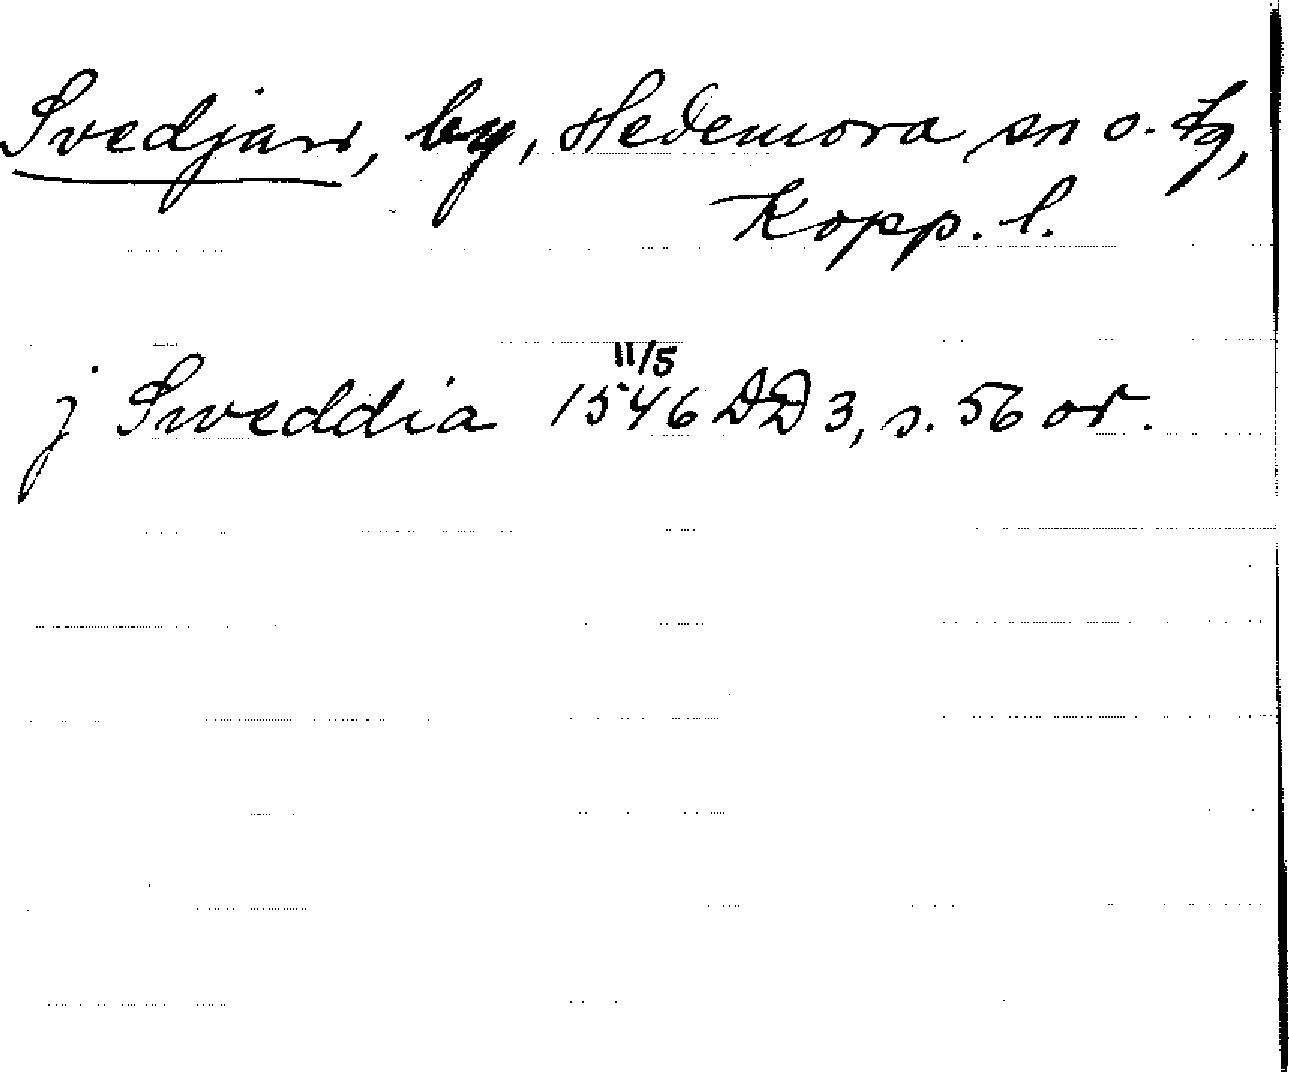 Svedjan, by, Hedemora sn o. tg,
Kopp. l.
j Sweddia 11/5 1546 DD 3, s. 56 or.